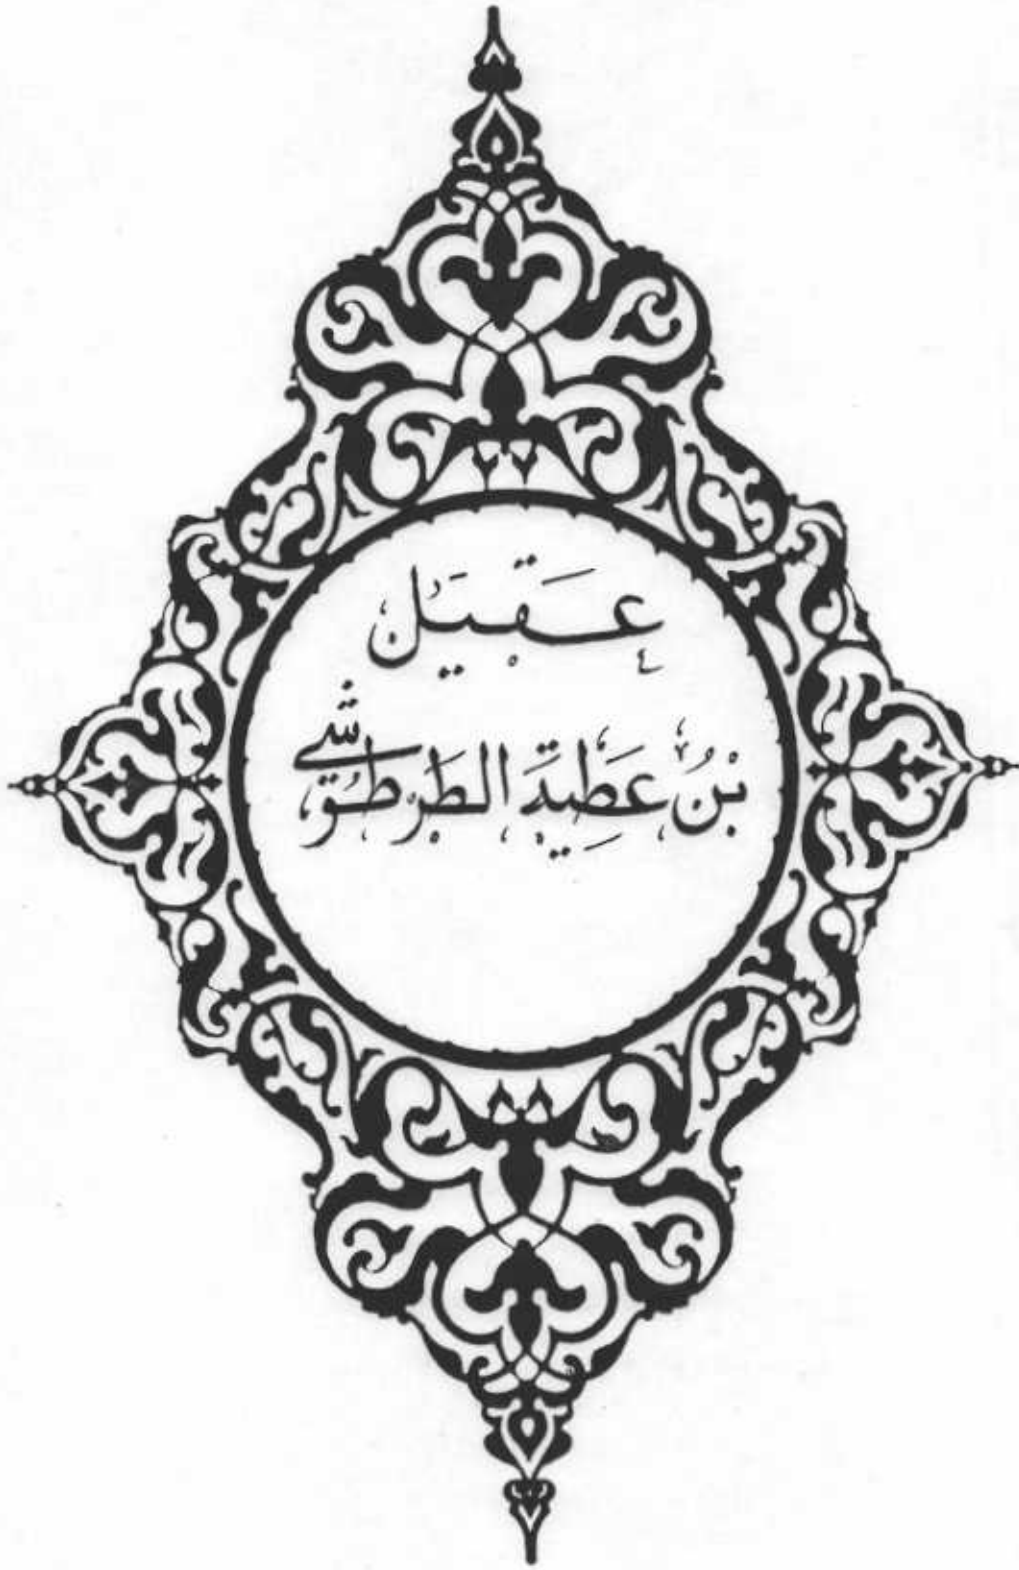 عقيل
بن عطية الطرطوشي